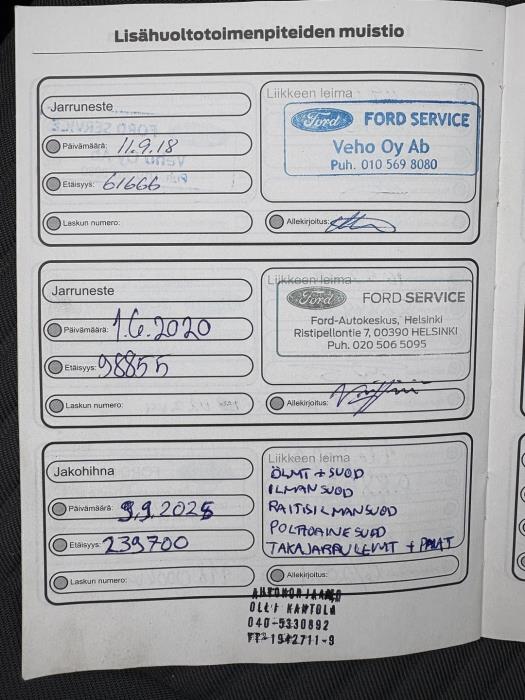 Lisähuoltotoimenpiteiden muistio
Jarruneste
Päivämäärä: 11.9.18
Etäisyys: 61666
Laskun numero:
Liikkeen leima
Ford FORD SERVICE
Veho Oy Ab
Puh. 010 569 8080
Allekirjoitus:
Jarruneste
Päivämäärä: 1.6.2020
Etäisyys: 98855
Laskun numero:
Liikkeen leima
Ford FORD SERVICE
Ford-Autokeskus, Helsinki
Ristipellontie 7, 00390 HELSINKI
Puh. 020 506 5095
Allekirjoitus:
Jakohihna
Päivämäärä: 9.9.2025
Etäisyys: 239700
Laskun numero:
Liikkeen leima
ÖLMT + SUOD
ILMANSUOD
RAITISILMANSUOD
POLTTOAINESUOD
TAKAJARRULEVYT + PALAT
Allekirjoitus:
AUTONKORJAAMO
OLLI KANTOLA
040-5330892